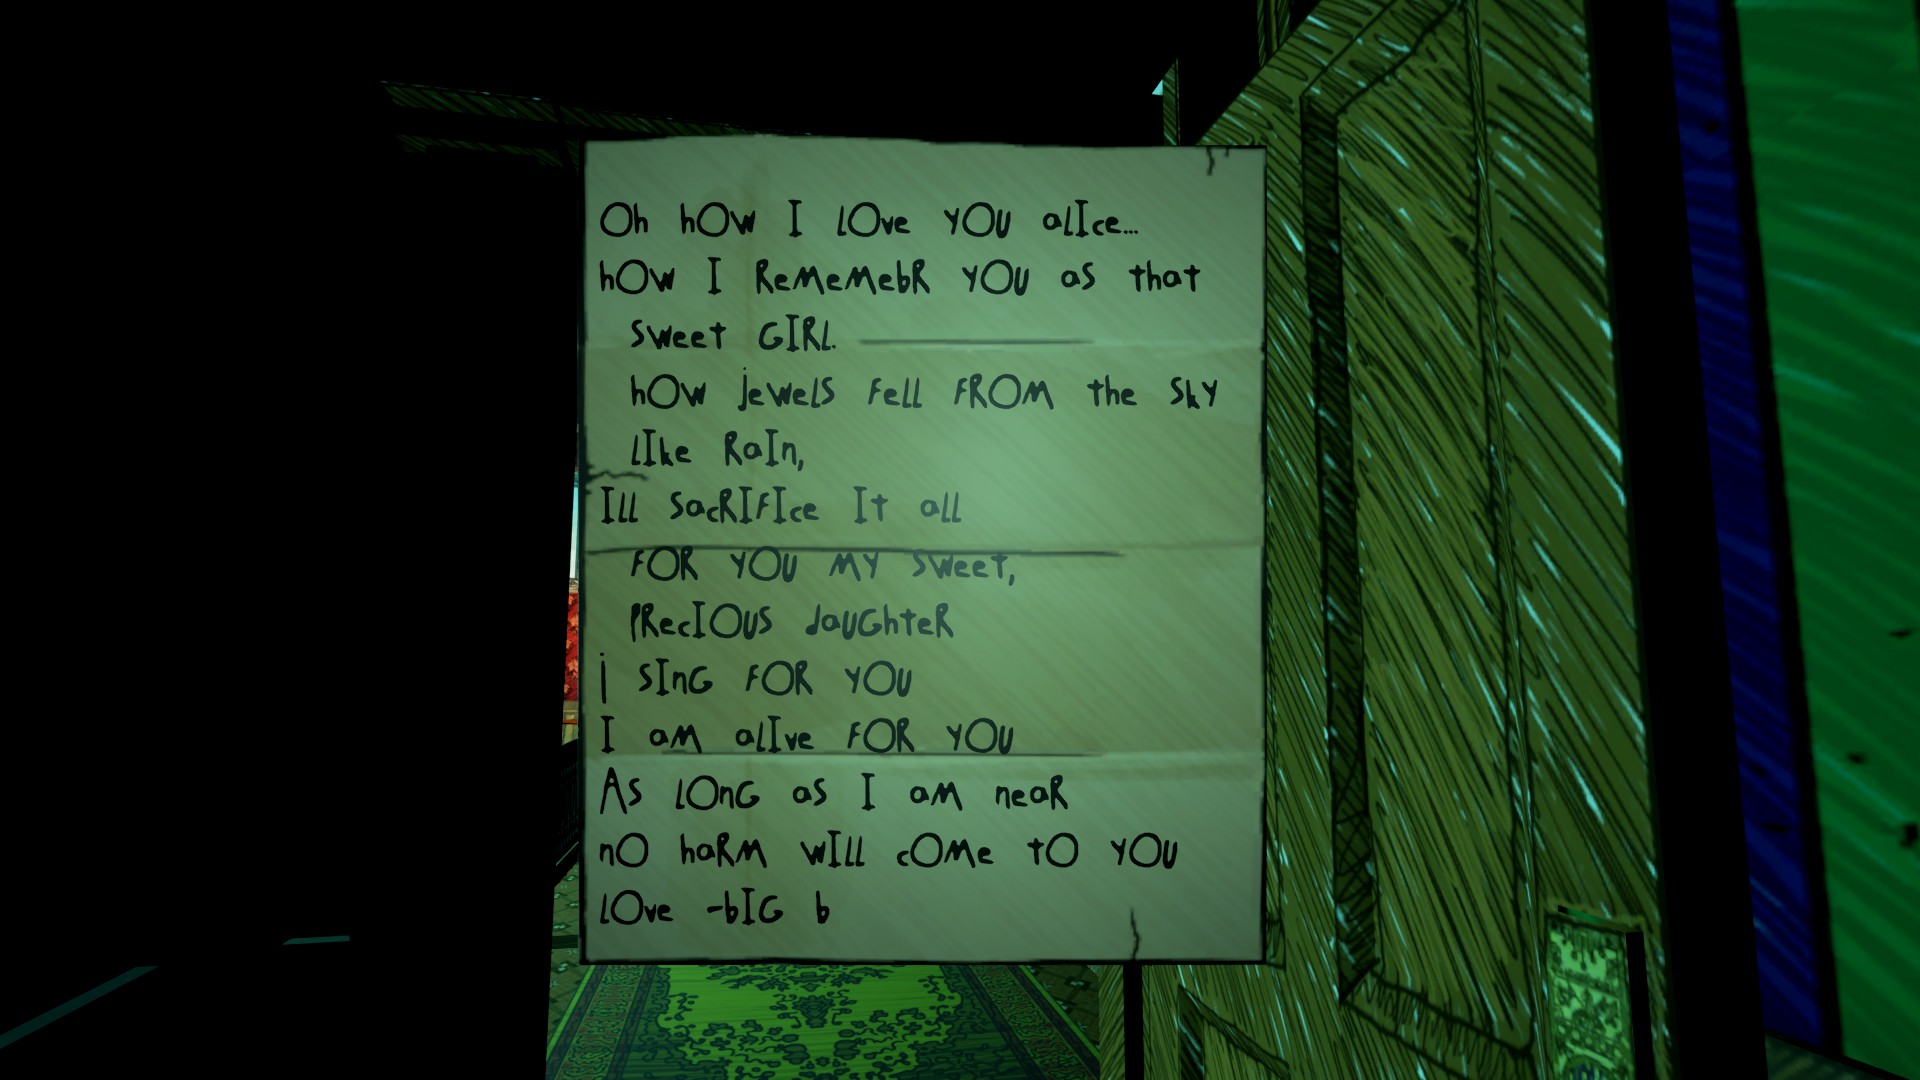 Oh hOw I lOve yOU alIce...
hOw I ReMeMebR yOU as that
sweet GIRl.
hOw jewelS fell fROM the Sky
lIke RaIn,
Ill SacRIfIce It all
fOR yOU My sweet,
PRecIOUS daUGhteR
j SInG fOR yOU
I aM alIve fOR yOU
As lOnG as I aM neaR
nO haRM wIll cOMe tO yOU
lOve -bIG b